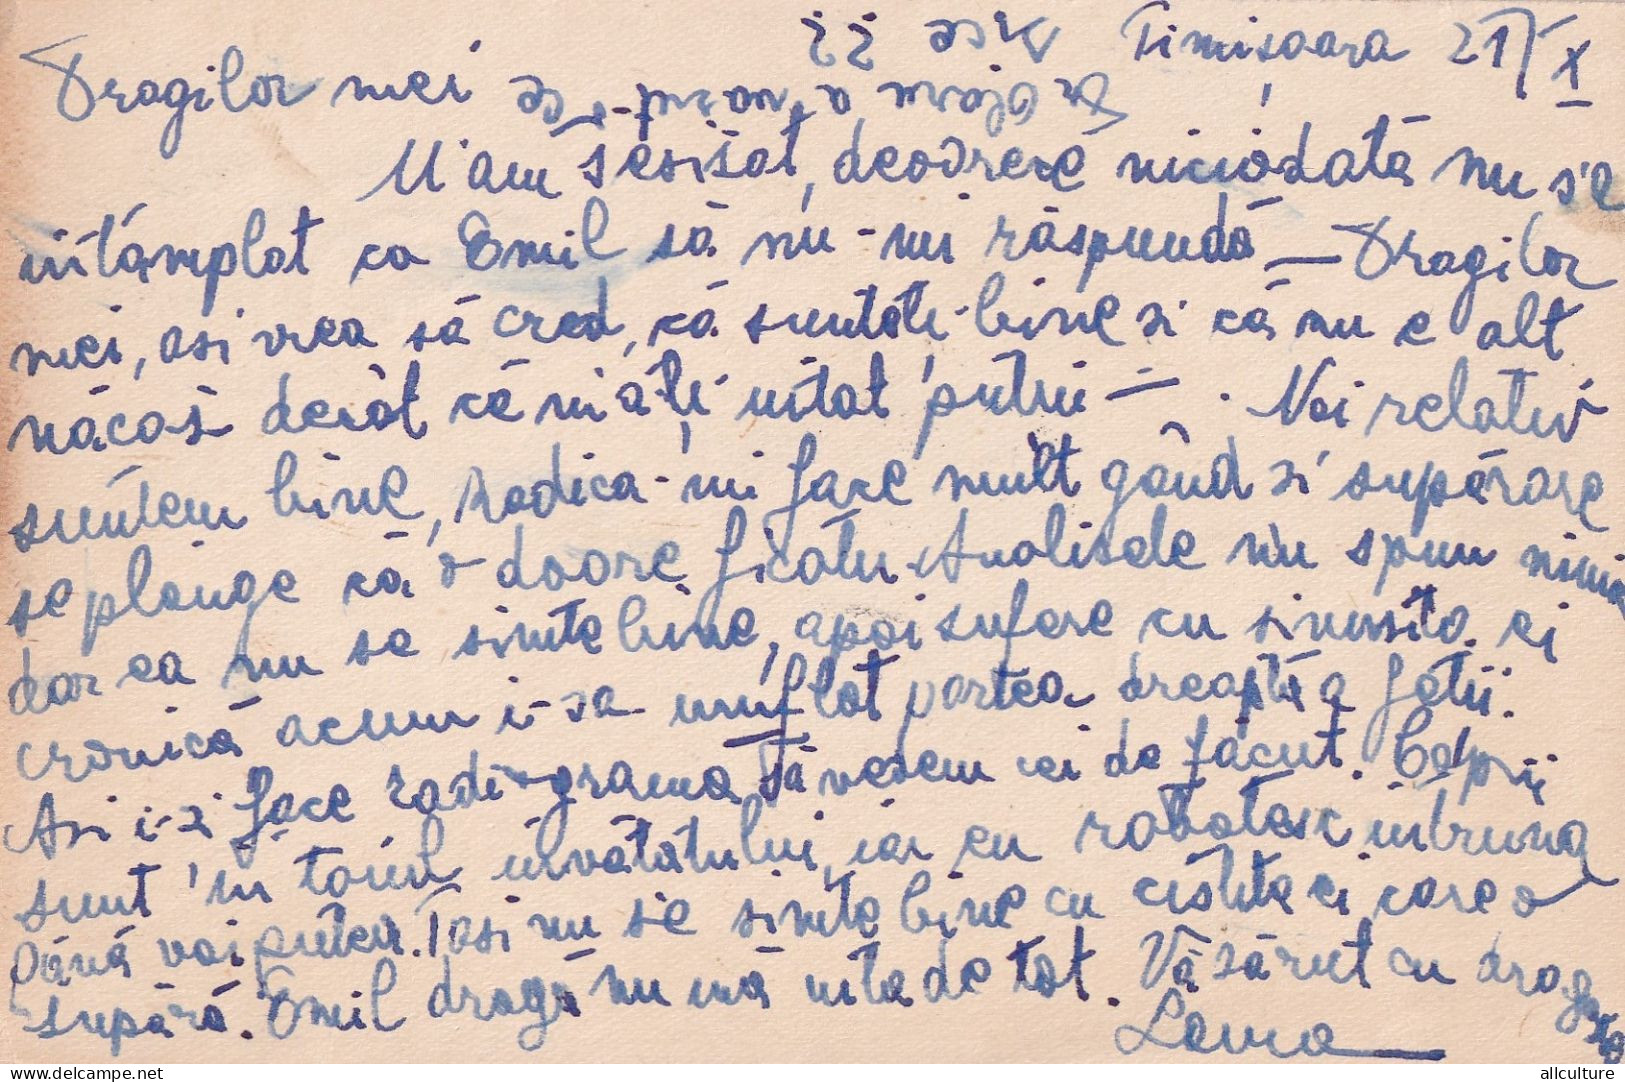 Timișoara 21/X
Dragilor mei
M'am sesisat, deoarece niciodată nu s'a
întâmplat ca Emil să nu-mi răspundă — Dragilor
mei, asi vrea să cred, că sunteti bine si că nu e alt
năcas decât că m'ați uitat puțin — . Noi relativ
suntem bine, Rodica-mi face mult gând si supărare
se plânge că o doare ficatu. Analisele nu spun nimic
dar ea nu se simte bine, apoi sufere cu sinusita ei
cronică acum i-sa umflat partea dreaptă a fetii.
Asi i-si face radiograma să vedem cei de făcut. Copii
sunt în toiul învătătului, iar eu robotesc intruna
până voi putea. Tasi nu se simte bine cu cistita ei care o
supără. Emil dragă nu mă uita de tot. Vă sărut cu drag
Lavra
allculture
delcampe.net